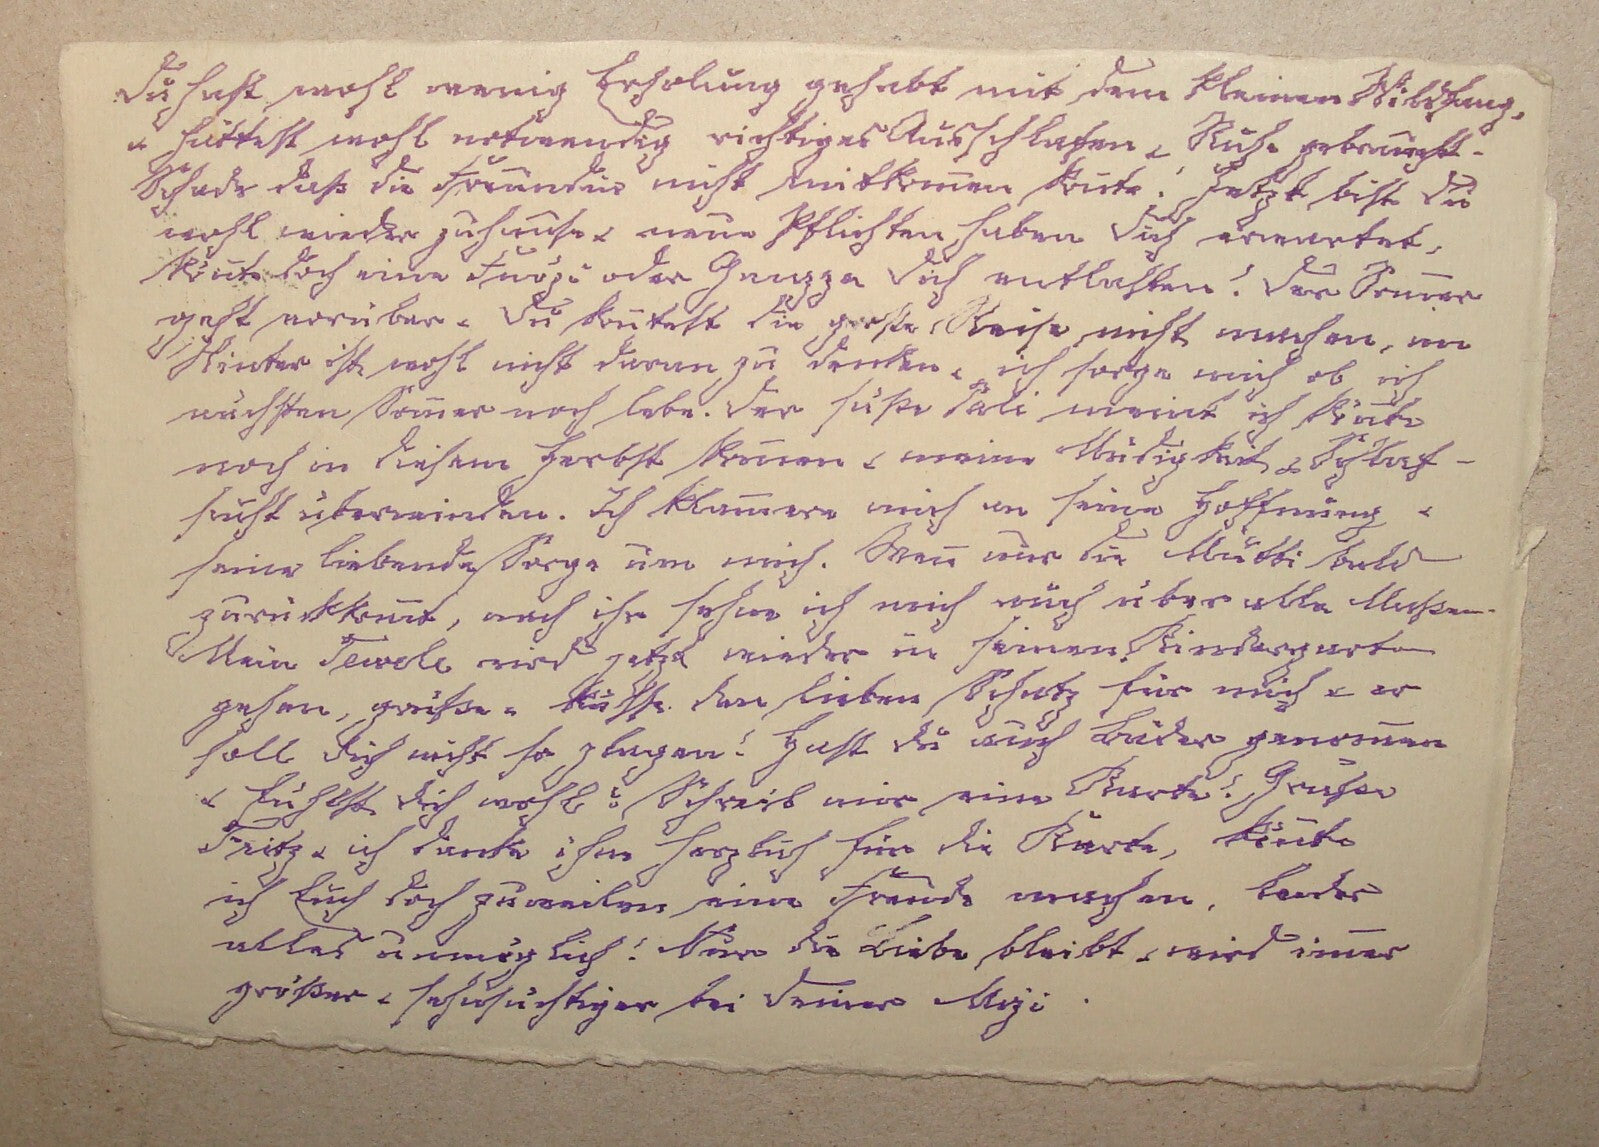 Du hast wohl wenig Erholung gehabt mit dem kleinen Wildfang,
u. hättest wohl notwendig richtiges Ausschlafen u. Ruhe gebraucht.
Schade daß die Freundin nicht mitkom̄en kon̄te! Jetzt bist Du
wohl wieder zuhause u. neue Pflichten haben Dich erwartet,
kön̄te doch eine oder Dich entlasten! Der Som̄er
geht vorüber u. Du kon̄test die große Reise nicht machen, im
Winter ist wohl nicht daran zu denken u. ich sorge mich ob ich
nächsten Som̄er noch lebe. Der süße meint ich kön̄te
noch in diesem Herbst kom̄en u. meine Müdigkeit u. Schlaf-
sucht überwinden. Ich klam̄ere mich an seine Hoffnung u.
seine liebende Sorge um mich. Wen̄ nur die Mutti bald
zurückkom̄t, nach ihr sehne ich mich auch über alle Maßen.
Mein wird jetzt wieder in seinen Kindergarten
gehen, grüße u. küsse den lieben Schatz für mich u. er
soll Dich nicht so plagen! Hast Du auch Bäder genom̄en
u. fühlst Dich wohl? Schreib mir eine Karte! Grüße
Fritz u. ich danke ihm herzlich für die Karte, kön̄te
ich Euch doch zuweilen eine Freude machen, leider
alles unmöglich! Nur die Liebe bleibt u. wird im̄er
größer u. sehnsüchtiger bei Deiner